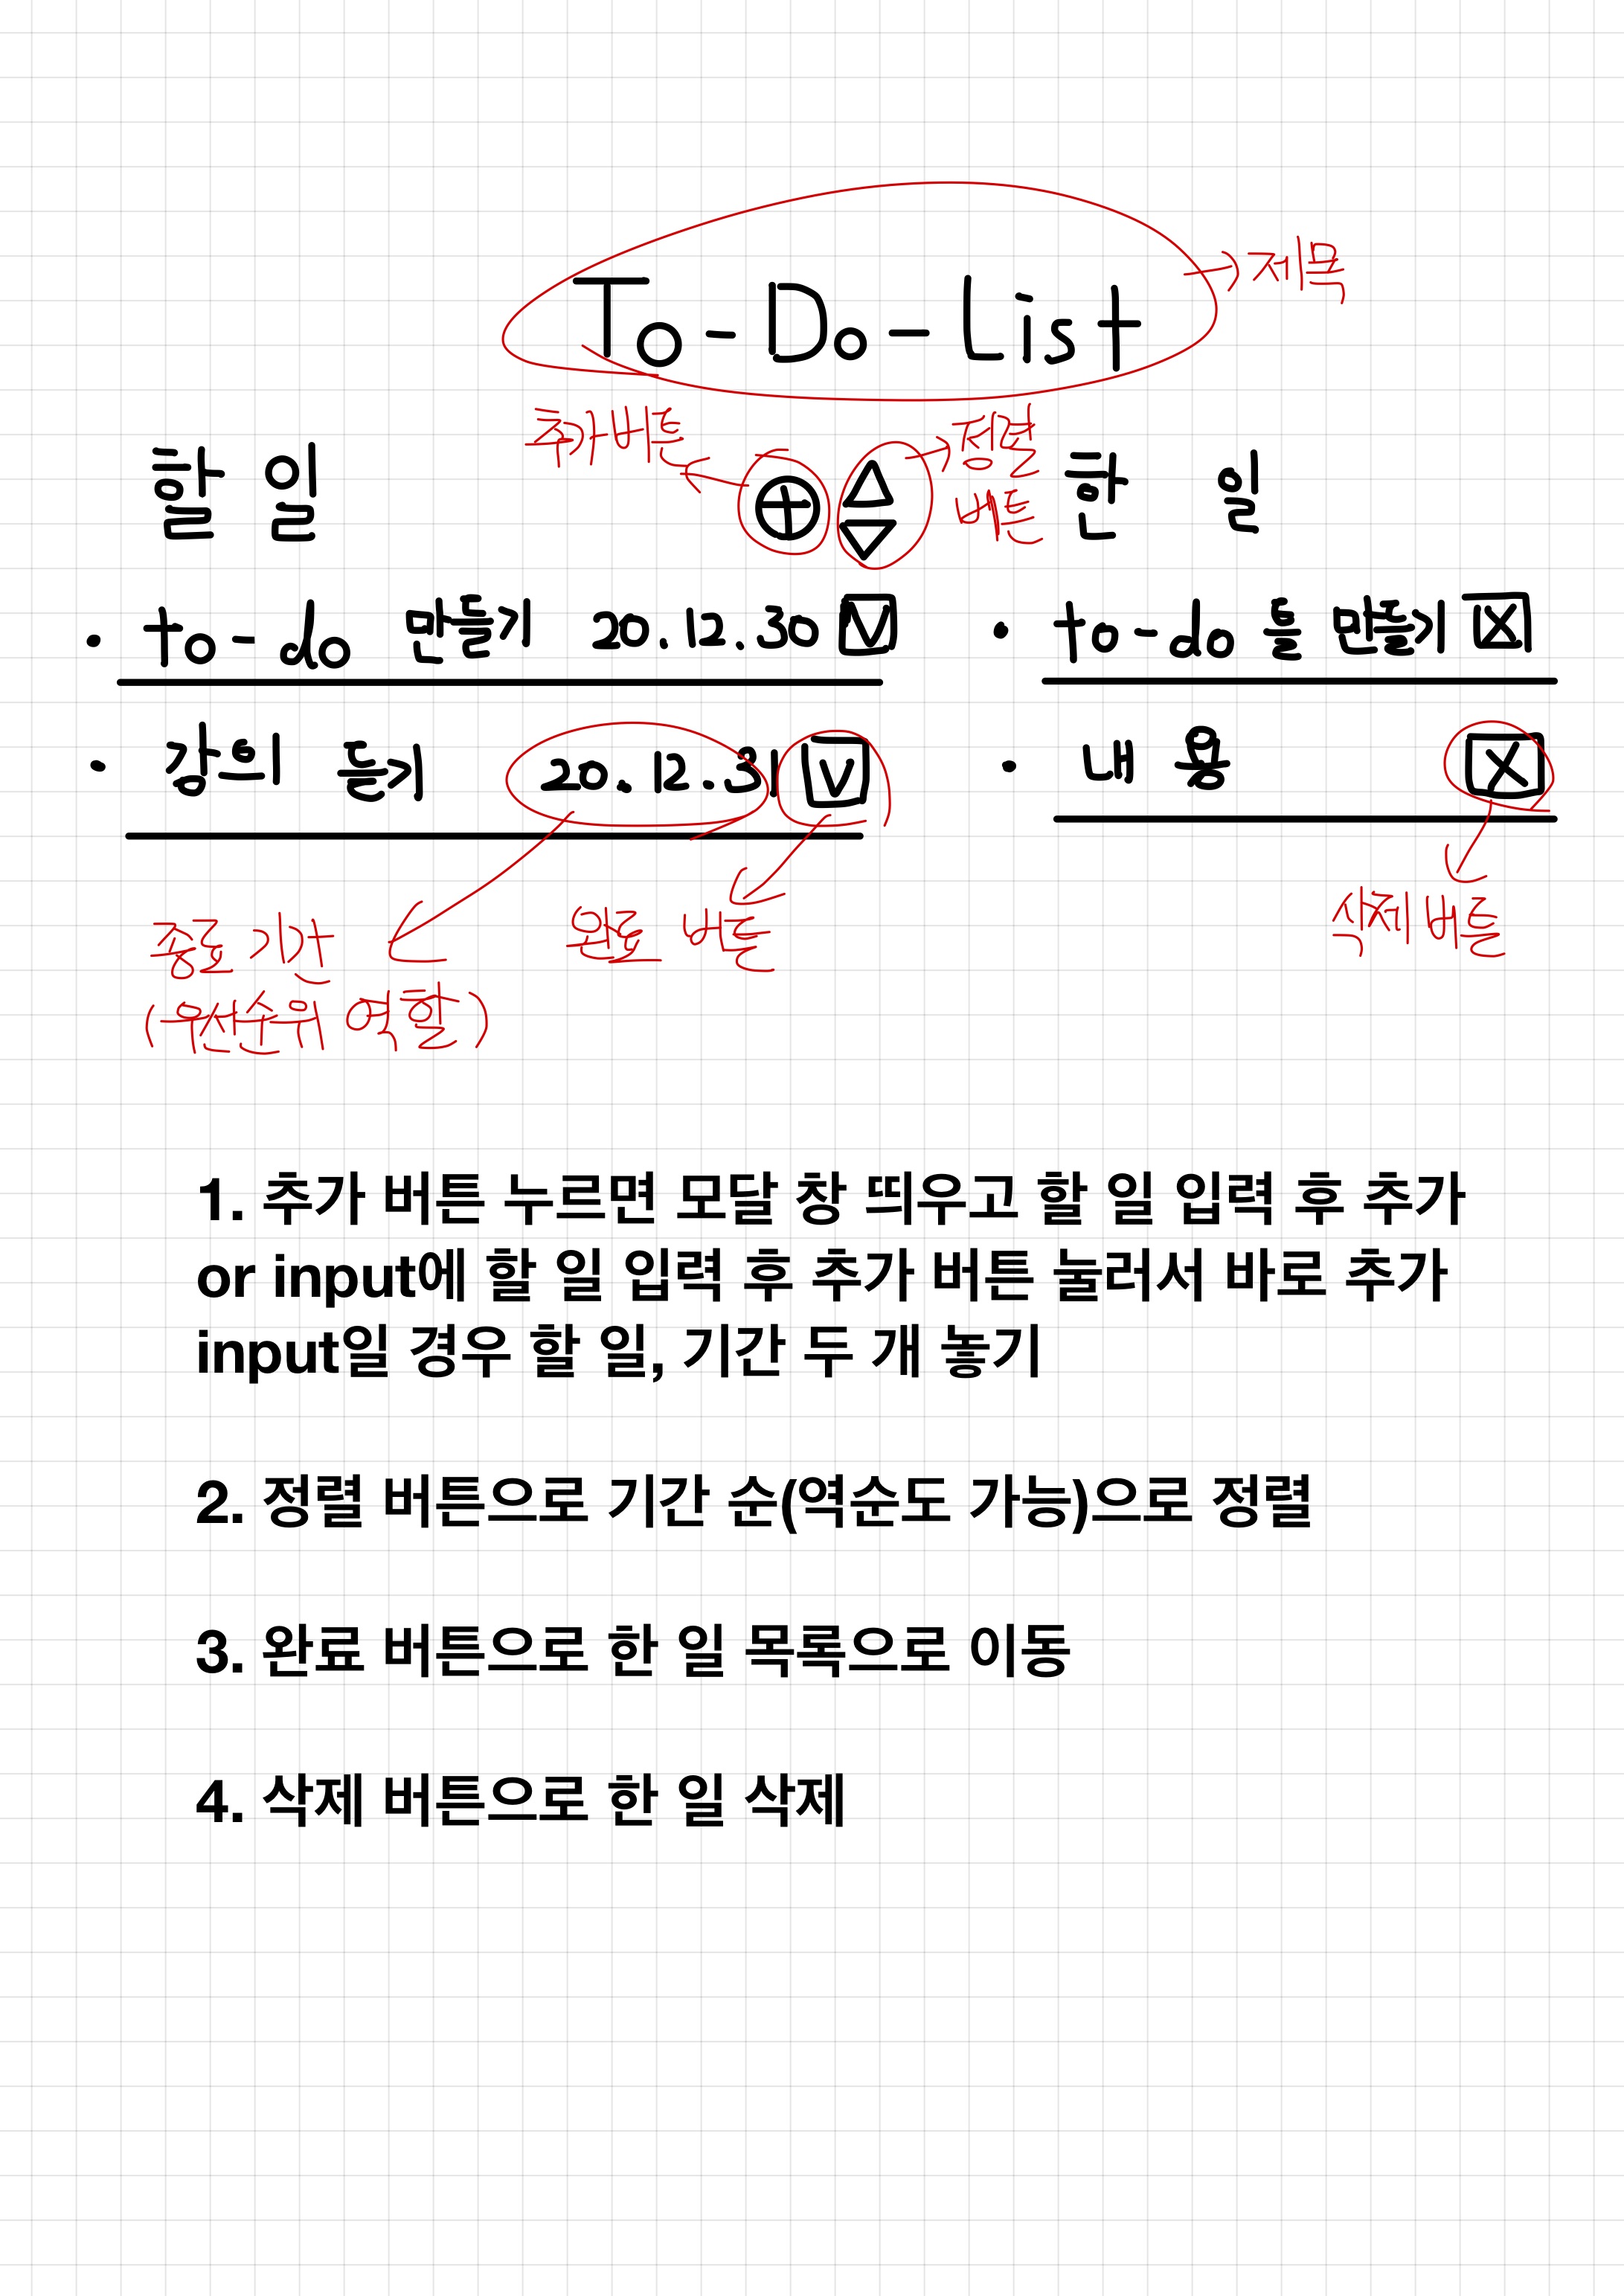 To-Do-List
→ 제목
추가버튼
정렬
버튼
할 일
한 일
• to-do 만들기 20.12.30 V
• to-do 를 만들기 X
• 강의 듣기 20.12.31 V
• 내용 X
종료 기간
(우선순위 역할)
완료 버튼
삭제 버튼
1. 추가 버튼 누르면 모달 창 띄우고 할 일 입력 후 추가
or input에 할 일 입력 후 추가 버튼 눌러서 바로 추가
input일 경우 할 일, 기간 두 개 놓기
2. 정렬 버튼으로 기간 순(역순도 가능)으로 정렬
3. 완료 버튼으로 한 일 목록으로 이동
4. 삭제 버튼으로 한 일 삭제